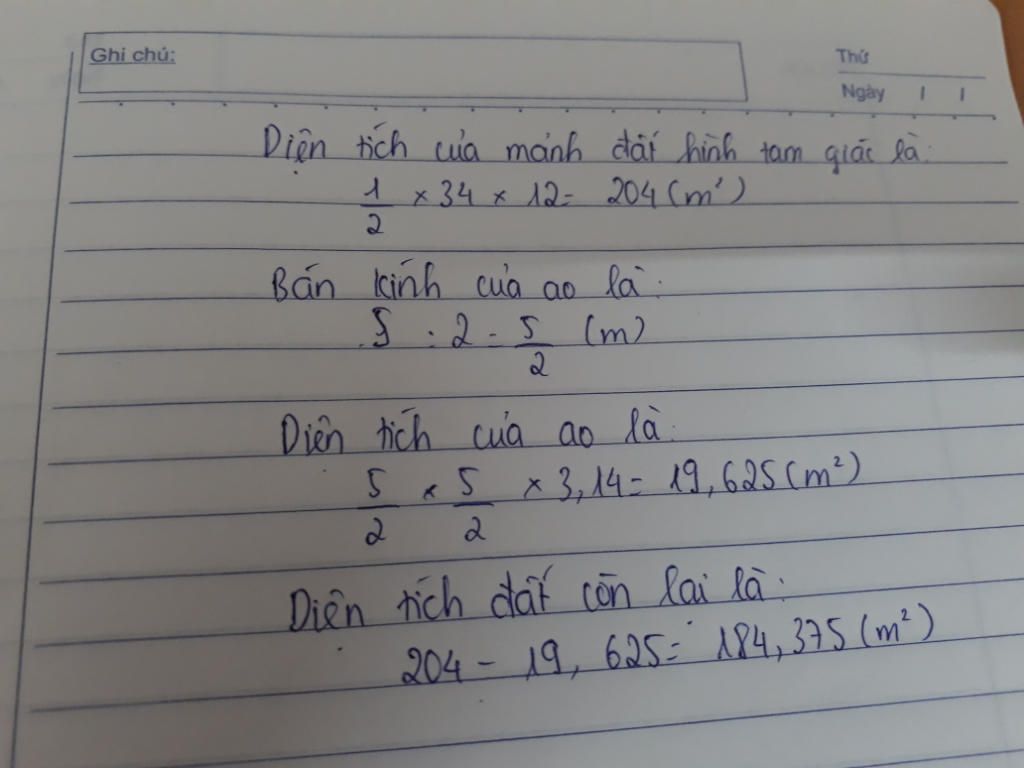 Ghi chú:
Thứ
Ngày / /
Diện tích của mảnh đất hình tam giác là:
1/2 × 34 × 12 = 204 (m²)
Bán kính của ao là:
5 : 2 = 5/2 (m)
Diện tích của ao là:
5/2 × 5/2 × 3,14 = 19,625 (m²)
Diện tích đất còn lại là:
204 - 19,625 = 184,375 (m²)